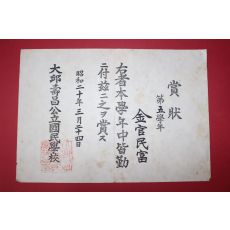 賞狀
第五學年
金官民富
右者本學年中皆勤
ニ付玆ニ之ヲ賞ス
昭和二十年三月二十四日
大邱壽昌公立國民學校